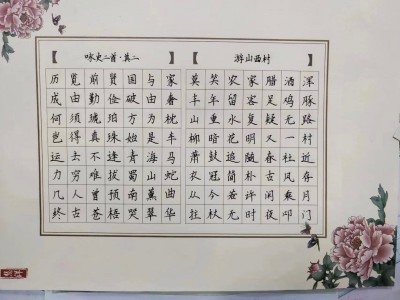 【 咏史二首·其二 】
历览前贤国与家
成由勤俭破由奢
何须琥珀方为枕
岂得真珠始是车
运去不逢青海马
力穷难拔蜀山蛇
几人曾预南薰曲
终古苍梧哭翠华
【 游山西村 】
莫笑农家腊酒浑
丰年留客足鸡豚
山重水复疑无路
柳暗花明又一村
萧鼓追随春社近
衣冠简朴古风存
从今若许闲乘月
拄杖无时夜叩门